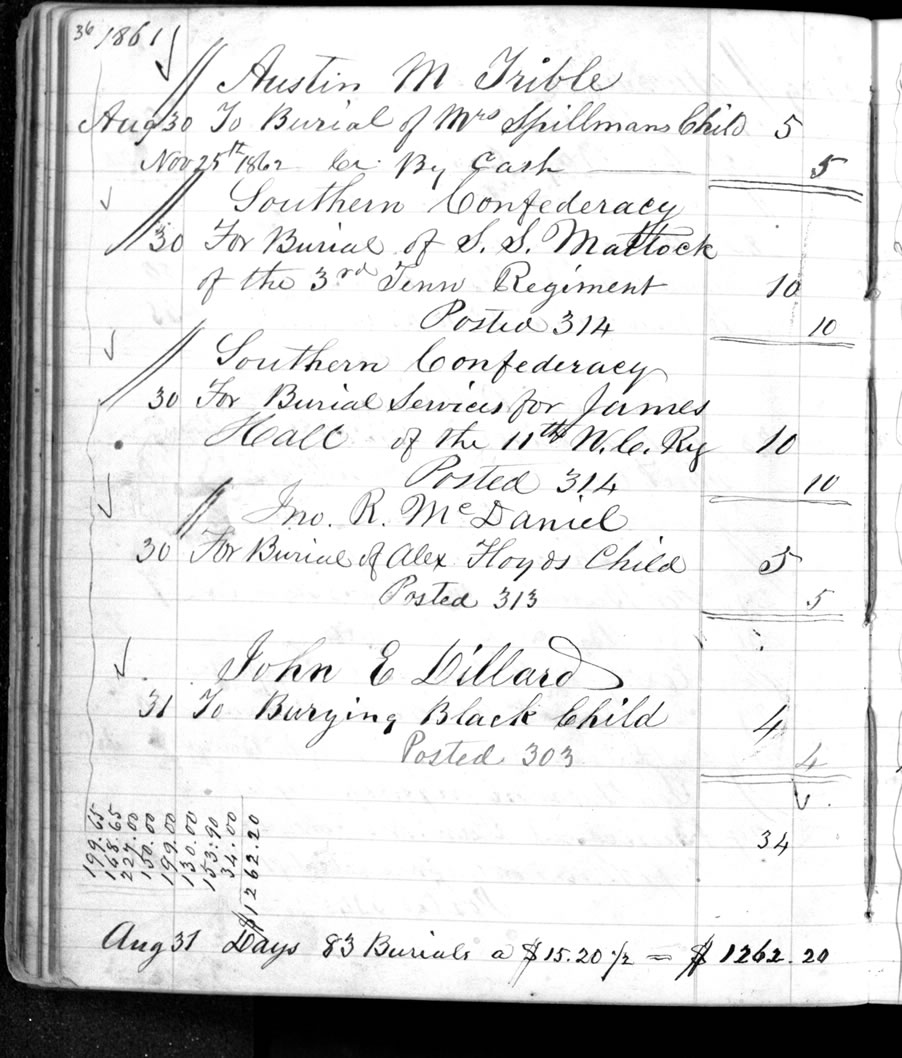 36 1861
Austin M Trible
Aug 30 To Burial of Mrs Spillmans Child 5
Nov 25th 1862 Cr. By Cash 5
Southern Confederacy
30 For Burial of S. S. Mattock
of the 3rd Tenn Regiment 10
Posted 314 10
Southern Confederacy
30 For Burial Services for James
Hall of the 11th N.C. Rg 10
Posted 314 10
Jno. R. McDaniel
30 For Burial of Alex Floyds Child 5
Posted 313 5
John E Dillard
31 To Burying Black Child 4
Posted 303 4
34
199.65
168.65
227.00
150.00
199.00
130.00
153.90
34.00
$1262.20
Aug 31 Days 83 Burials a $15.20 1/2 = $1262.20